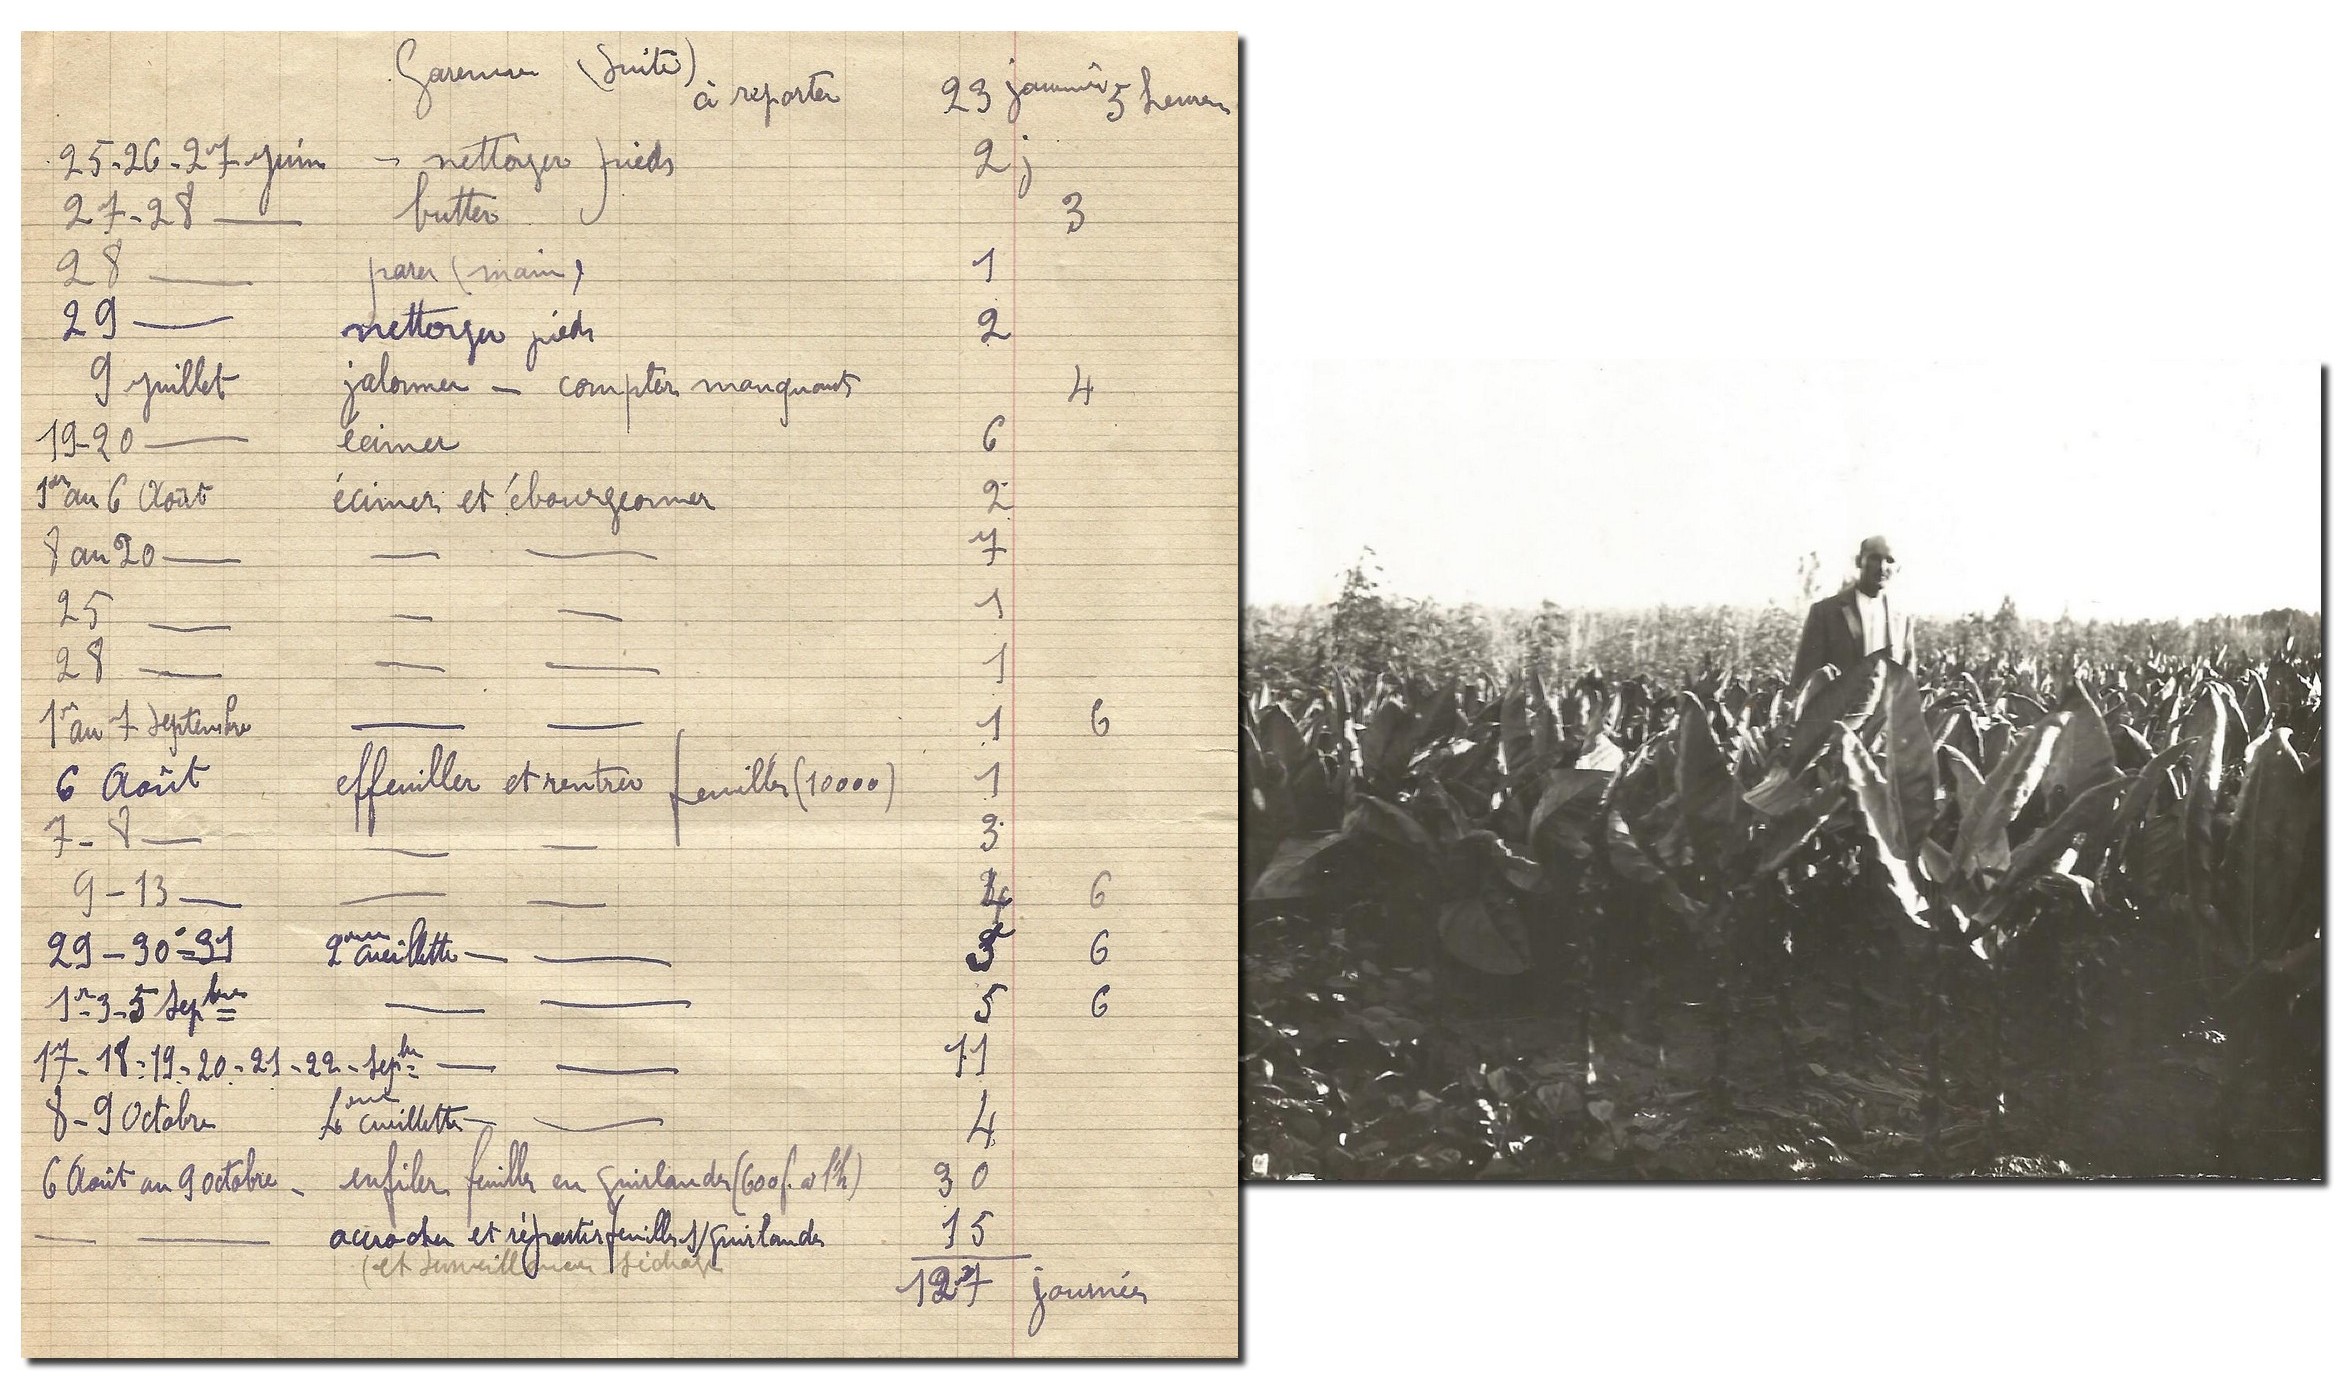 Garenne (Suite)
à reporter 23 journées 5 heures
25-26-27 juin — nettoyer pieds 2 j
27-28 — butter 3
28 — parer (main) 1
29 — nettoyer pieds 2
9 juillet jalonner — compter manquants 4
19-20 — écimer 6
1er au 6 Août écimer et ébourgeonner 2
8 au 20 — — — 7
25 — — — 1
28 — — — 1
1er au 7 Septembre — — 1 6
6 Août effeuiller et rentrer feuilles (10000) 1
7-8 — — — 3
9-13 — — — 4 6
29-30-31 2ème cueillette — — 3 6
1er-3-5 Sepbre — — 5 6
17-18-19-20-21-22- Sepbre — — 11
8-9 Octobre 4ème cueillette — — 4
6 Août au 9 octobre - enfiler feuilles en guirlandes (600f. à l'h) 30
— — accrocher et répartir feuilles s/guirlandes 15
(et surveillance séchage
127 journées